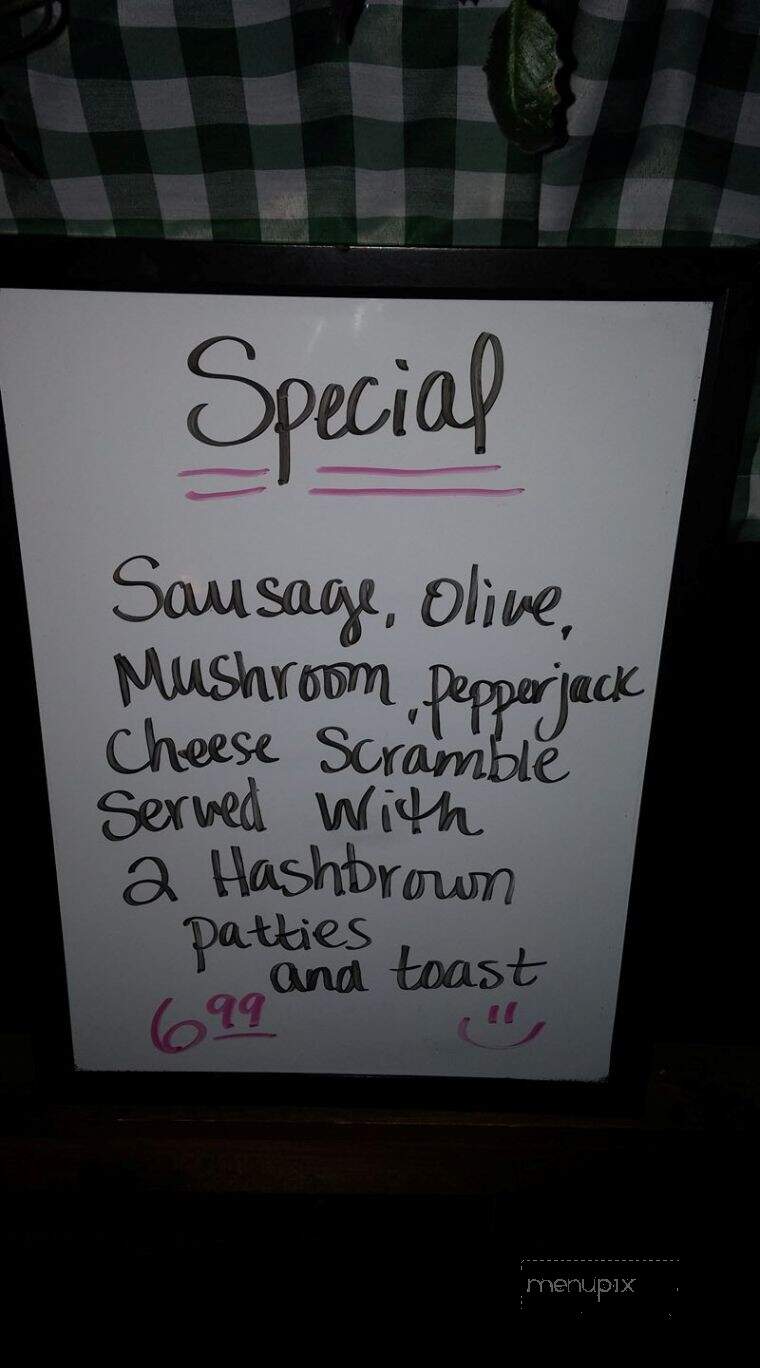 Special
Sausage, Olive,
Mushroom, Pepperjack
Cheese Scramble
Served With
2 Hashbrown
patties
and toast
6 99
menupix